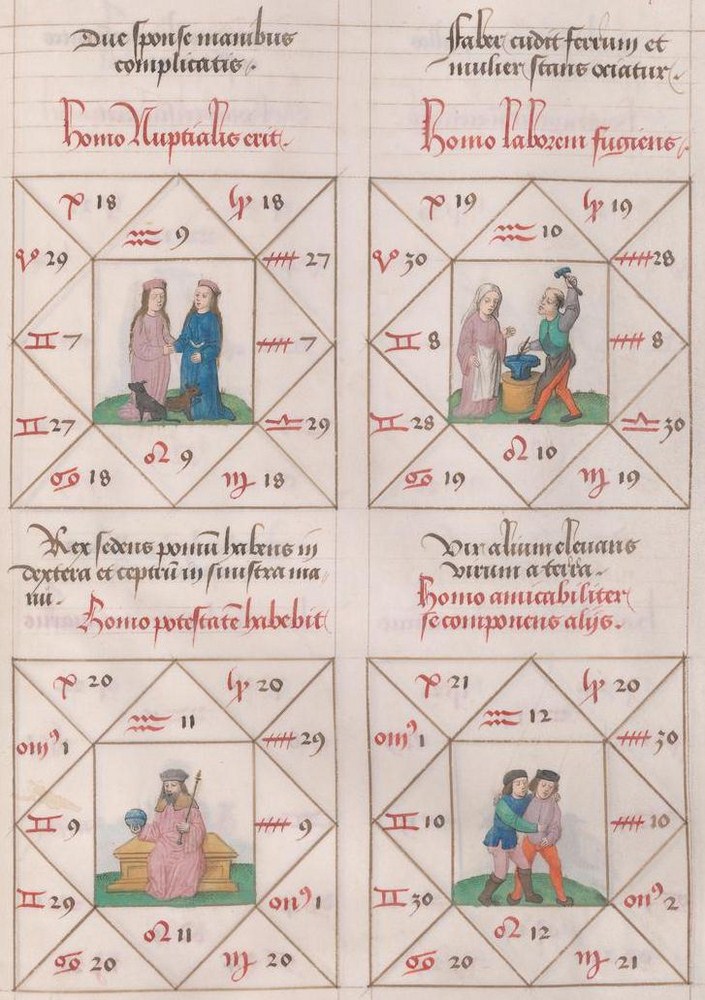 Due sponse manibus
complicatis.
Homo Nuptialis erit.
♓ 18 ♑ 18
♒ 9
♈ 29 ♐ 27
♊ 7 ♐ 7
♊ 27 ♎ 29
♌ 9
♋ 18 ♍ 18
Faber cudit ferrum et
mulier stans ociatur.
Homo laborem fugiens.
♓ 19 ♑ 19
♒ 10
♈ 30 ♐ 28
♊ 8 ♐ 8
♊ 28 ♎ 30
♌ 10
♋ 19 ♍ 19
Rex sedens pomū habens in
dextera et ceptrū in sinistra ma
nu.
Homo potestatē habebit
♓ 20 ♑ 20
♒ 11
omꝰ 1 ♐ 29
♊ 9 ♐ 9
♊ 29 onꝰ 1
♌ 11
♋ 20 ♍ 20
Vir alium elevans
virum a terra.
Homo amicabiliter
se componens alijs.
♓ 21 ♑ 20
♒ 12
omꝰ 1 ♐ 30
♊ 10 ♐ 10
♊ 30 onꝰ 2
♌ 12
♋ 20 ♍ 21